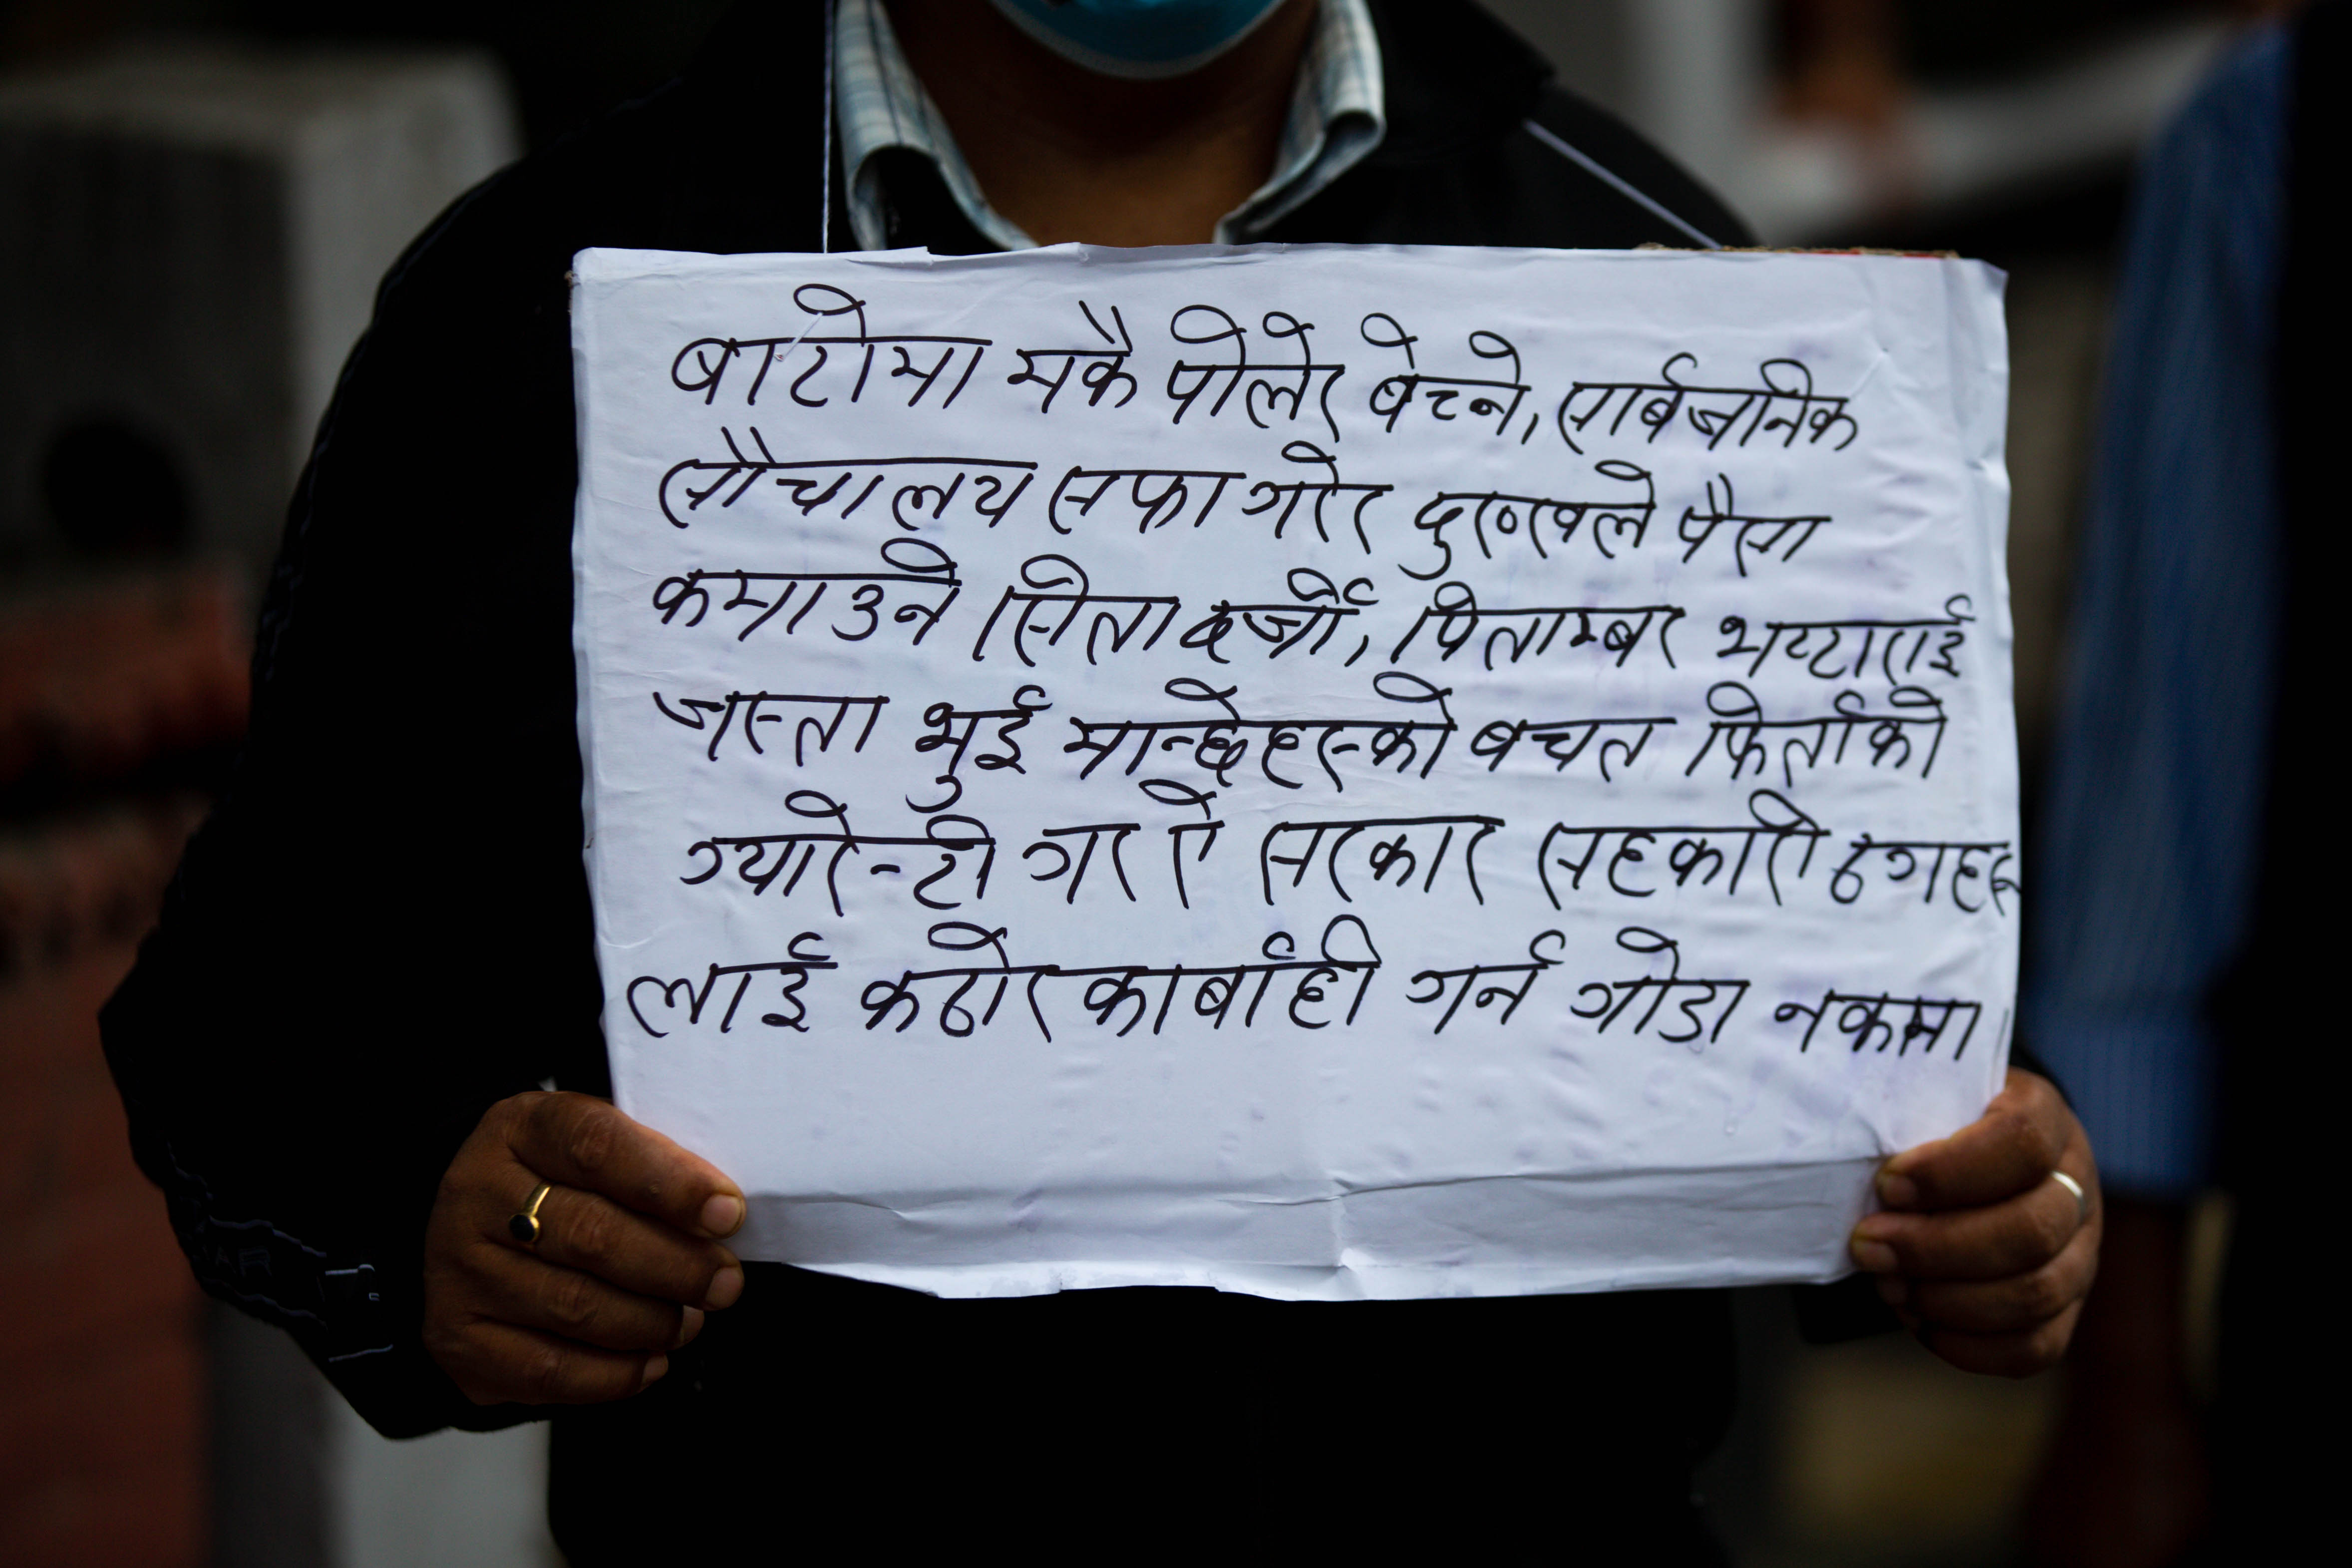 बाटोमा मकै पोलेर बेच्ने, सार्बजनिक
सौचालय सफा गरेर दुःखले पैसा
कमाउने सिता दर्जी, पिताम्बर भट्टाराई
जस्ता भुई मान्छेहरुको बचत फिर्ताको
ग्यारेन्टी गर ऐ सरकार सहकारी ठगहरु
लाई कठोर कार्बाही गर्न गोडा नकमा